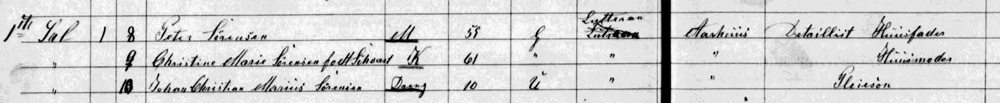 1ste Sal 1 8 Peter Sørensen M 53 G Lutheran Aarhuus Detaillist Huusfader
" 9 Christine Marie Sørensen født K 61 " " " Huusmoder
" 10 Johan Christian Marius Sørensen Dreng 10 U " " Pleiesøn